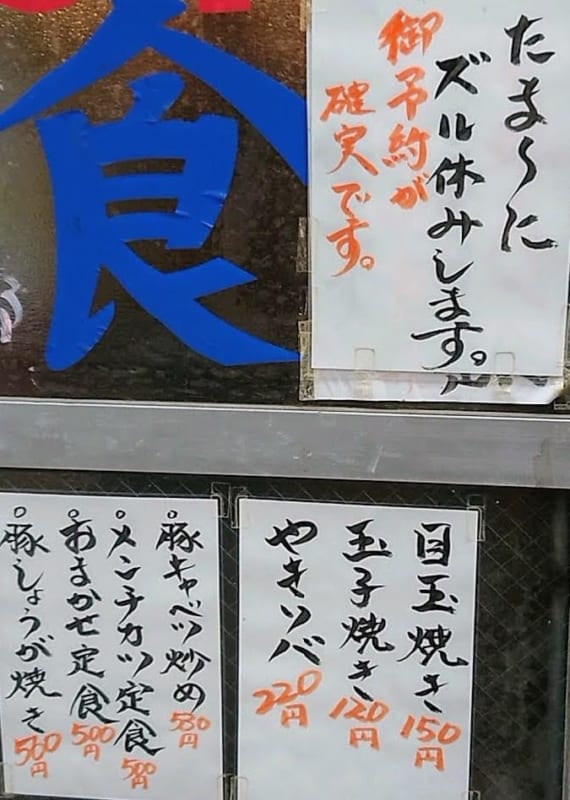 食
たま〜に
ズル休みします。
御予約が
確実です。
目玉焼き150円
玉子焼き120円
やきソバ220円
豚キャベツ炒め580円
メンチカツ定食500円
おまかせ定食500円
豚しょうが焼き560円